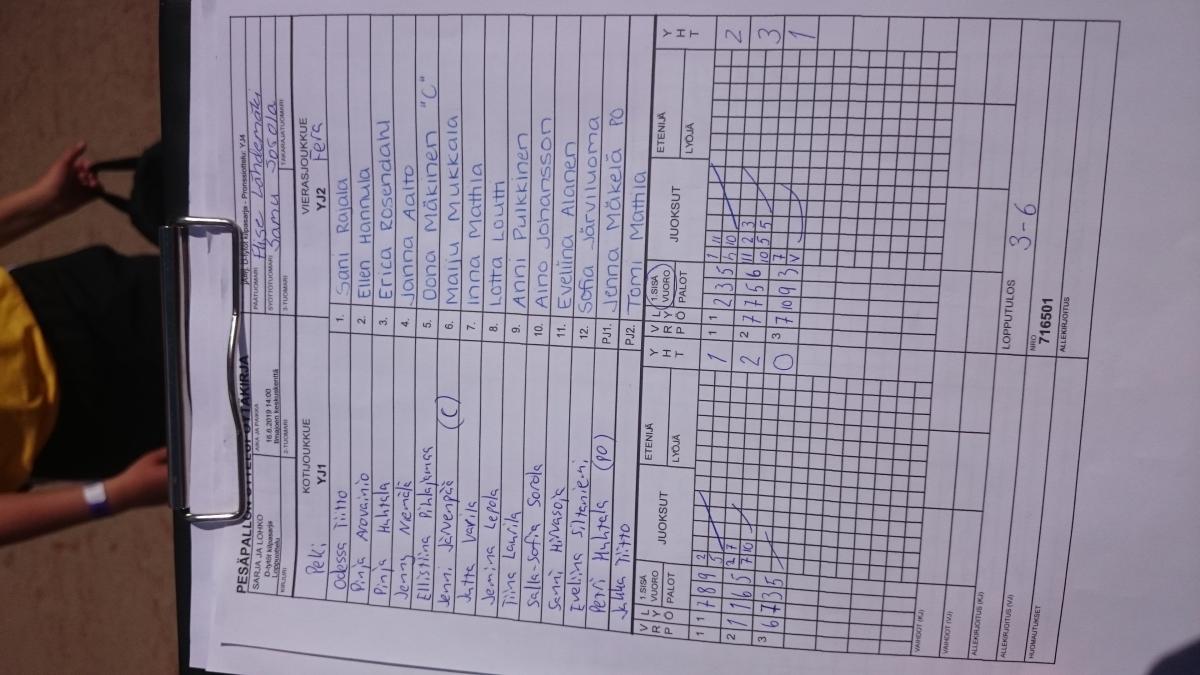 PESÄPALLON OTTELUPÖYTÄKIRJA
SARJA JA LOHKO
D-tytöt kilpasarja
Loppuottelu
AIKA JA PAIKKA
16.6.2019 14:00
Ilmajoen keskuskenttä
D-tytöt kilpasarja - Pronssiottelu: YJ4
PÄÄTUOMARI
Elise Lähdemäki
SYÖTTÖTUOMARI
Samu Sorola
KIRJURI
2-TUOMARI
3-TUOMARI
TAKARAJATUOMARI
KOTIJOUKKUE
YJ1
VIERASJOUKKUE
YJ2
PeKi
Fera
Odessa Tiitto
1. Sani Rajala
Pinja Arovainio
2. Ellen Hannula
Pinja Huhtala
3. Erica Rosendahl
Jenny Kremälä
4. Janna Aalto
Ellistiina Pihlajamaa
5. Oona Mäkinen "C"
Jenni Järvenpää (C)
6. Maiju Mukkala
Jatta Varila
7. Inna Mathla
Jemina Lepola
8. Lotta Loutti
Tiina Laurila
9. Anni Pulkkinen
Salla-Sofia Sorola
10. Aino Johansson
Sanni Hirvasoja
11. Eveliina Alanen
Eveliina Siltaniemi
12. Sofia Järviluoma
Petri Huhtala (PO)
PJ1. Jonna Mäkelä PO
Jukka Tiitto
PJ2. Tomi Mathla
V R P
L Y Ö
1.SISÄ
VUORO
PALOT
JUOKSUT
ETENIJÄ
LYÖJÄ
Y H T
V R P
L Y Ö
1.SISÄ
VUORO
PALOT
JUOKSUT
ETENIJÄ
LYÖJÄ
Y H T
1 1 7 8 9 2 5 1
1 1 2 3 5 1 11 2
2 1 1 6 5 2 7 7 10 2
2 7 7 5 6 11 2 3 10 5 5 3
3 6 7 3 5 0
3 7 10 9 3 7 V 1
VAIHDOT (KJ)
VAIHDOT (VJ)
ALLEKIRJOITUS (KJ)
ALLEKIRJOITUS (VJ)
LOPPUTULOS
3-6
HUOMAUTUKSET
NRO
716501
ALLEKIRJOITUS